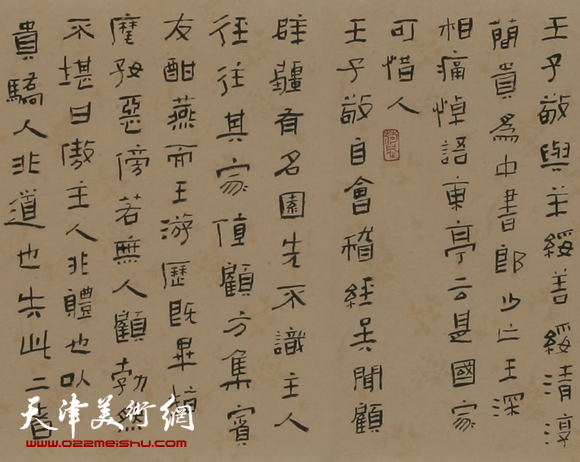 王子敬與羊綏善綏清淳
簡貴爲中書郎少亡王深
相痛悼語東亭云是國家
可惜人
王子敬自會稽經吳聞顧
辟疆有名園先不識主人
徑往其家值顧方集賓
友酣燕而王游歷既畢指
麾好惡傍若無人顧勃然
不堪曰傲主人非禮也以
貴驕人非道也失此二者
天津美術網
www.022meishu.com